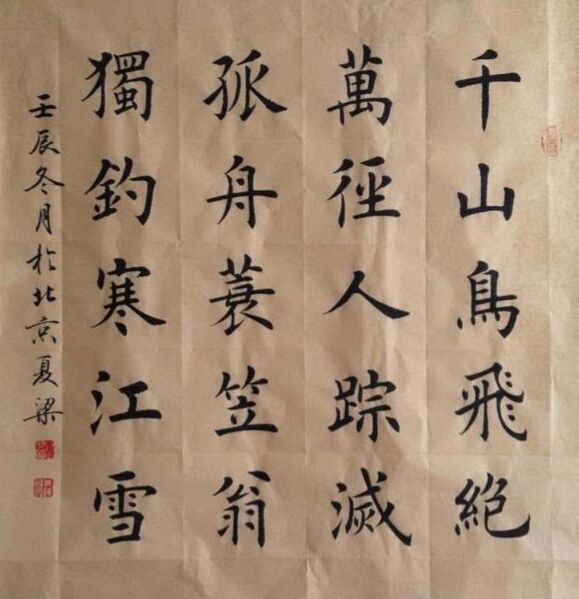 千山鳥飛絕
萬徑人踪滅
孤舟蓑笠翁
獨釣寒江雪
壬辰冬月於北京夏梁